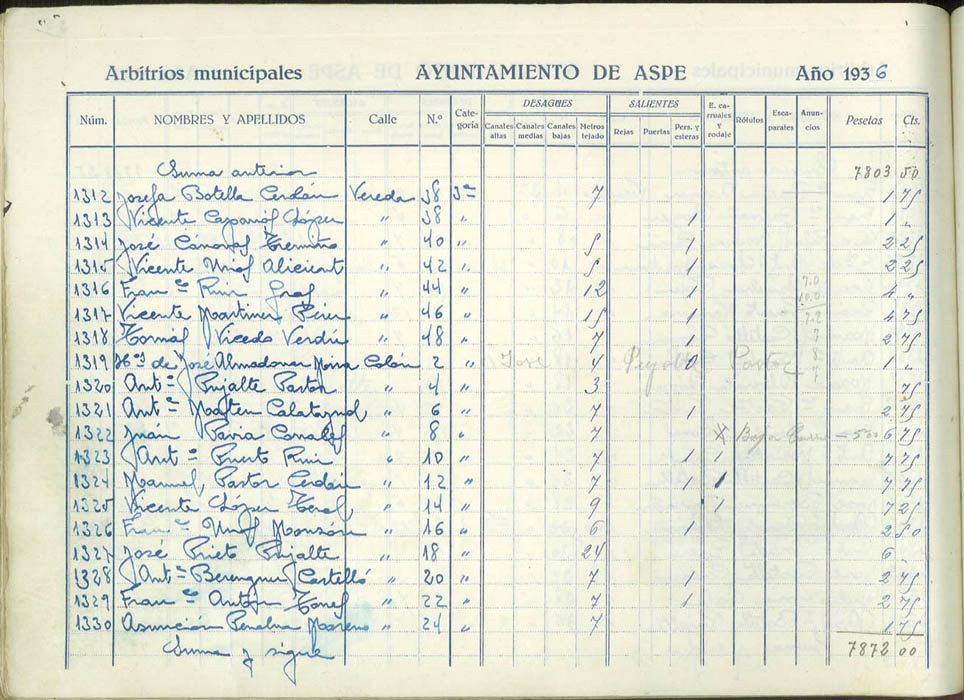 Arbitrios municipales AYUNTAMIENTO DE ASPE Año 1936
DESAGÜES SALIENTES
Núm. NOMBRES Y APELLIDOS Calle N.º Cate-goría Canales altas Canales medias Canales bajas Metros tejado Rejas Puertas Pers. y esteras E. ca-rruajes y rodaje Rótulos Esca-parates Anun-cios Pesetas Cts.
Suma anterior 7803 50
1312 Josefa Botella Cerdán Vereda 38 3ª 7 1 75
1313 Vicente Caparrós López " 38 " 1 1 "
1314 José Cánovas Tremiño " 40 " 5 1 2 25
1315 Vicente Urios Alicicart " 42 " 5 1 2 25
1316 Franco Ruiz Gras " 44 " 12 1 4 "
1317 Vicente Martinez Pérez " 46 " 15 1 4 75
1318 Tomás Vicedo Verdú " 48 " 7 1 2 75
1319 Hos de José Almodovar Mira Colón 2 " 4 1 "
1320 Anto Pujalte Pastor " 4 " 3 75
1321 Anto Calatayud " 6 " 7 1 2 75
1322 Juán Pavia Canales " 8 " 7 X Baja Carro = 500 6 75
1323 Anto Puerto Ruiz " 10 " 7 1 1 7 75
1324 Manuel Pastor Cerdán " 12 " 7 1 1 7 75
1325 Vicente López Terol " 14 " 9 1 7 25
1326 Franco Urios Monzón " 16 " 6 1 2 50
1327 José Prieto Pujalte " 18 " 24 6
1328 Anto Berenguer Castelló " 20 " 7 1 2 75
1329 Franco Antón Torres " 22 " 7 1 2 75
1330 Asunción Penalva Moreno " 24 " 7 1 75
Suma y sigue 7872 00